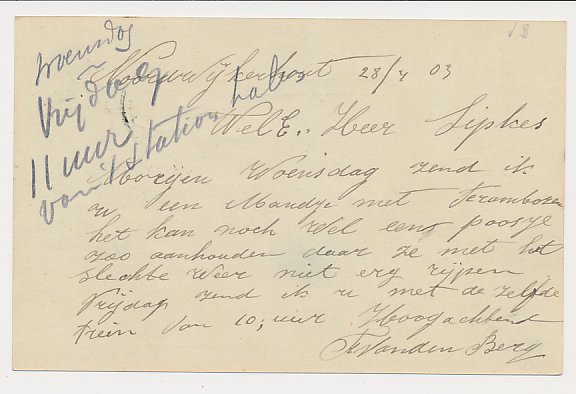 VB
Woensdag
Vrijdag
11 uur
van 't station halen
Noordwijkerhout 28/7 03
WelE. Heer Sipkes
Morgen Woensdag zend ik
u een Mandje met Frambozen
het kan nog wel eens poosje
zoo aanhouden daar ze met het
slechte weer niet erg rijpen
Vrijdag zend ik u met de zelfde
trein van 10; uur Hoogachtend
VandenBerg